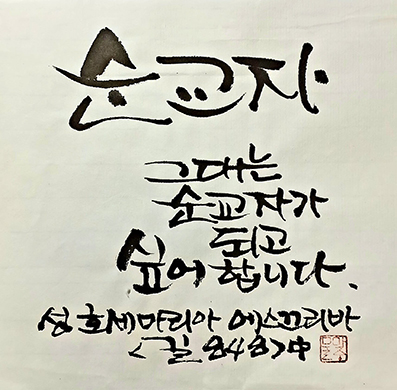 순교자
그대는
순교자가
되고
싶어합니다.
성 호세마리아 에스끄리바
<길 848>中